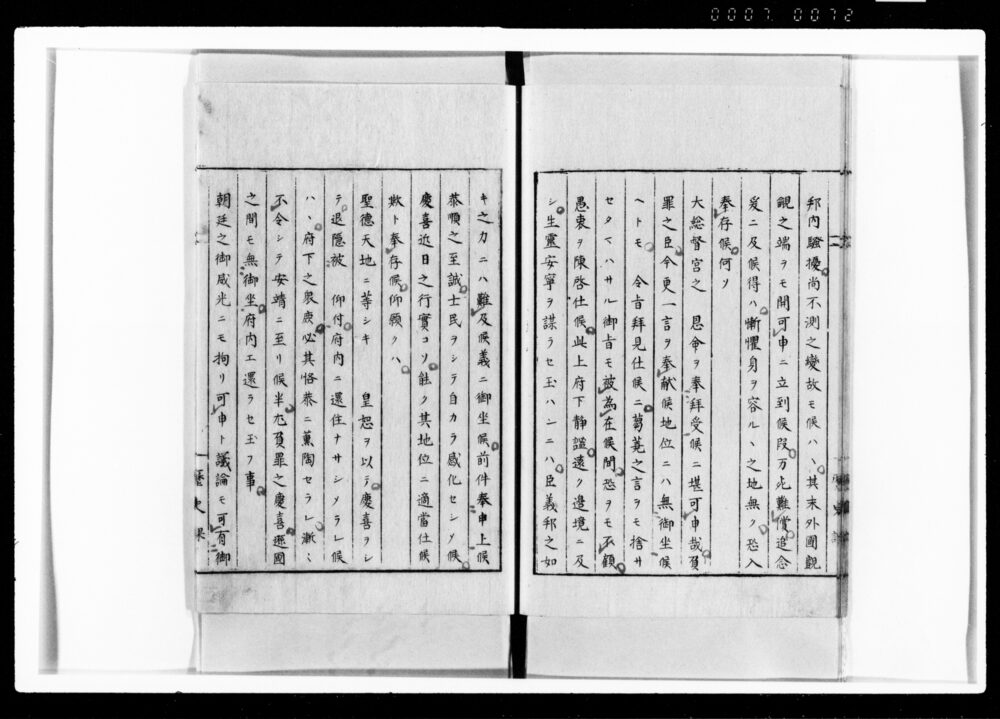 0007 0072
邦内騒擾尚不測之變故モ候ハヽ其末外國觀
覦之端ヲモ開可申ニ立到候段万死難償追念
爰ニ及候得ハ慚懼身ヲ容ルヽ之地無ク恐入
奉存候何ソ
大総督宮之 恩命ヲ奉拜受候ニ堪可申哉負
罪之臣今更一言ヲ奉献候地位ニハ無御坐候
ヘトモ 令旨拜見仕候ニ蒭蕘之言ヲモ捨サ
セタマハサル御旨モ被為在候間恐ヲモ不顧
愚衷ヲ陳啓仕候此上府下静謐遠ク邉境ニ及
シ生霊安寧ヲ謀ラセ玉ハンニハ臣義邦之如
キ之力ニハ難及候義ニ御坐候前件奉申上候
恭順之至誠士民ヲシテ自カラ感化セシメ候
慶喜近日之行實コソ能ク其地位ニ適當仕候
歟ト奉存候仰願クハ
聖徳天地ニ等シキ 皇恕ヲ以テ慶喜ヲシ
テ退隠被 仰付府内ニ還住ナサシメラレ候
ハヽ府下之衆庶必其恪恭ニ薫陶セラレ漸ニ
不令シテ安靖ニ至リ候半尤負罪之慶喜遷國
之間モ無御坐府内エ還ラセ玉フ事
朝廷之御威光ニモ拘リ可申ト議論モ可有御
歴史課